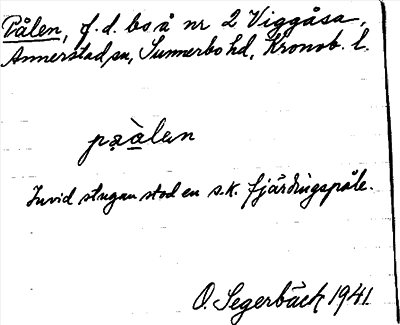 Pålen, f. d. bo å nr 2 Viggåsa,
Annerstad sn, Sunnerbo hd, Kronob. l.
pạàlen
Invid stugan stod en s.k. fjärdingspåle.
O. Segerbäck 1941.